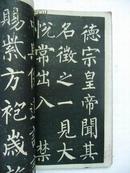 德宗皇帝聞其
名徵之一見大
悅常出入禁
賜紫方袍歲時